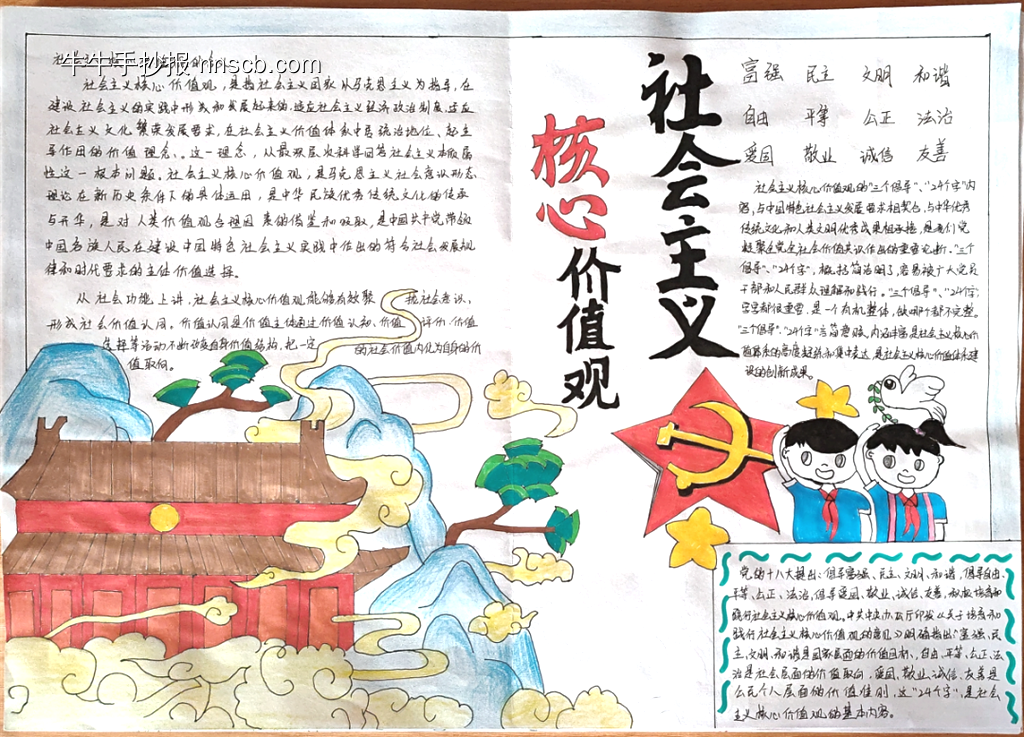 牛牛手抄报-nnscb.com
社会主义核心价值观，是指社会主义国家以马克思主义为指导，在
建设社会主义的实践中形成和发展起来的，适应社会主义经济政治制度，适应
社会主义文化繁荣发展要求，在社会主义价值体系中居统治地位、起主
导作用的价值理念、。这一理念，从最深层次科学回答社会主义本质属
性这一根本问题。社会主义核心价值观，是马克思主义社会意识形态
理论在新历史条件下的具体运用，是中华民族优秀传统文化的传承
与升华，是对人类价值观合理因素的借鉴和吸收，是中国共产党带领
中国各族人民在建设中国特色社会主义实践中作出的符合社会发展规
律和时代要求的主体价值选择。
从社会功能上讲，社会主义核心价值观能够有效聚 社会意识，
形成社会价值认同。价值认同是价值主体通过价值认知、价值 评价、价值
选择等活动不断改变自身价值结构，把一定 的社会价值内化为自身的价
值取向。
社会主义
核心
价值观
富强 民主 文明 和谐
自由 平等 公正 法治
爱国 敬业 诚信 友善
社会主义核心价值观的"三个倡导"、"24个字"内
容，与中国特色社会主义发展要求相契合，与中华优秀
传统文化和人类文明优秀成果相承接，是我们党
凝聚全党全社会价值共识作出的重要论断。"三个
倡导"、"24个字"，概括简洁明了，容易被广大党员
干部和人民群众理解和践行。"三个倡导"、"24个字，
字字都很重要，是一个有机整体，缺哪个都不完整。
"三个倡导"、"24个字"言简意赅、内涵丰富是社会主义核心价
值体系的高度凝练和集中表达，是社会主义核心价值体系建
设的创新成果。
党的十八大提出：倡导富强、民主、文明、和谐，倡导自由、
平等、公正、法治，倡导爱国、敬业、诚信、友善，积极培育和
践行社会主义核心价值观。中共中央办公厅印发《关于培育和
践行社会主义核心价值观的意见》明确指出：富强、民
主、文明、和谐是国家层面的价值目标，自由、平等、公正、法
治是社会层面的价值取向，爱国、敬业、诚信、友善是
公民个人层面的价值准则，这"24个字"，是社会
主义核心价值观的基本内容。